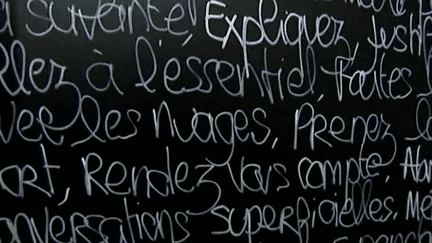 suivante, Expliquez, Justif
llez à l'essentiel, Faites
vec les nuages, Prenez
art, Rendez vous compte, Alar
onversations superficielles. Me